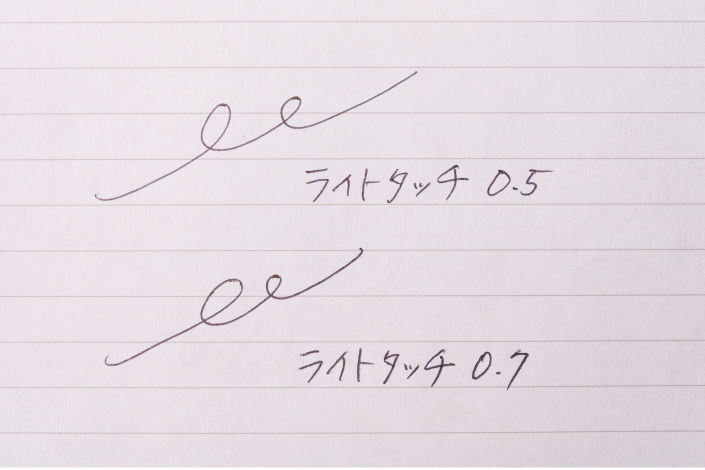 ライトタッチ 0.5
ライトタッチ 0.7